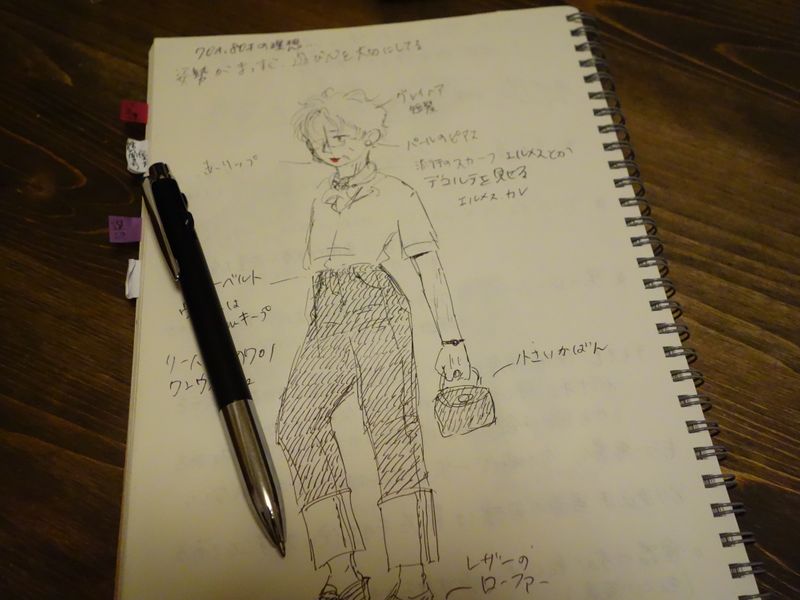 70才、80才の理想…
姿勢がまっすぐ、遊び心を大切にしてる
グレイヘア
パールのピアス
赤リップ
スカーフ エルメスとか
デコルテを見せる
エルメス カレ
ベルト
は
キープ
小さいかばん
リーバイスの701
レザーの
ローファー